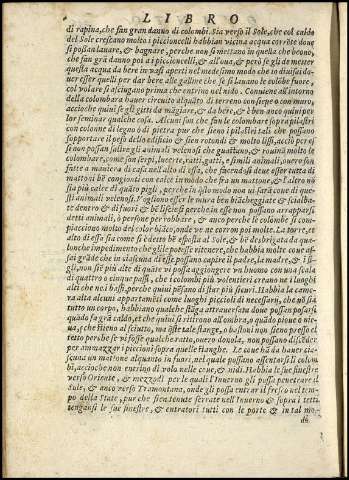 LIBRO
di rapina, che fan gran danno di colombi. Sia verso il Sole, che col caldo
del Sole crescano molto i piccioncelli habbian vicina acqua corrête doue
si posan lauare, & bagnare, perche non si mettano in quella che beono,
che fan grã danno poi ai piccioncelli, & all'oua, & però se gli de metter
questa acqua da bere in vasi aperti nel medesimo modo che io diuisai do-
uer esser quelli per dar bere alle galline che se si lauano le colõbe fuore,
col volare si asciugano prima che entrino nel nido. Conuiene all'intorno
della colombara hauer circuito alquãto di terreno con siepe o con muro,
acciochè quini se gli gitti da mãgiare, & da bere, & è ben anco quini per
lor seminar qualche cosa. Alcuni son che fan le colombare sopra pilastri
con colonne di legno ò di pietra pur che sieno i pilastri tali che possano
sopportare il peso dello edificio & sien rotondi & molto lissi, acciò per es-
si non possan salire gli animali velenosi che guastano, & rouinã molto le
colombare, come son serpi, lucerte, ratti, gatti, e simili animali, ouero son
fatte a maniera di casa nell'alto di essa, che facendosi deue esser tutta di
mattoni bẽ congionti con calce in modo che fra un mattone, & l'altro nõ
sia più calce di quãto pigli, perche in q̃sto modo non ui farã coue di que-
sti animali velenosi. Vogliono esser le mura ben biãcheggiate & scialba-
te dentro & di fuori & bẽ liscie sì perche in esse non possano arrapparsi
detti animali, ò persone per robbire, & anco perche le colombe si com-
piacciono molto del color biãco, onde ve ne corron poi molte. La torre, et
alto di essa sia come si è detto bẽ esposta al Sole, & bẽ desbrigata da qua-
lunche impedimento che gli potesse ritenere, che habbia molte coue as-
sai grãde che in ciascuna di esse possano capire il padre, la madre, & i fi-
gli, non siẽ più alte di quãte vi possa aggiongere vn huomo con una scala
di quattro o cinque passi, che i colombi più volentieri creano ne i luoghi
alti che ne i bassi, perche quini pẽsano di star più sicuri. Habbia la came-
ra alta alcuni appartamẽti come luoghi piccioli di necessarij, che nõ sia
tutto un corpo, habbiano qualche stãga attrauersata doue possan posarsi
quãdo farã caldo, et che quini si ritirino all'ombra, quãdo pioue o nie-
ua, che stieno al sciutto, ma q̃ste tale stange, o bastoni non sieno presso al
tetto perche se vi fosse qualche ratto, ouero donola, non possano discẽder
per ammazzar i piccioni sopra quelle stanghe. Le coue hã da hauer cia-
scuna un mattone alquanto in fuori, nel quale possano assentarsi li colombi,
acciochè non entrino di volo nelle coue, & nidi. Habbia le sue finestre
verso Oriente, & mezzodì per le quali l'Inuerno gli possa penetrare il
Sole, & anco verso Tramontana, onde gli possa entrar il fresco nel tem-
po della State, pur che sien tenute serrate nell'Inuerno & sopra i tetti
tengansi le sue finestre, & entratori tutti con le porte & in tal mo-
do